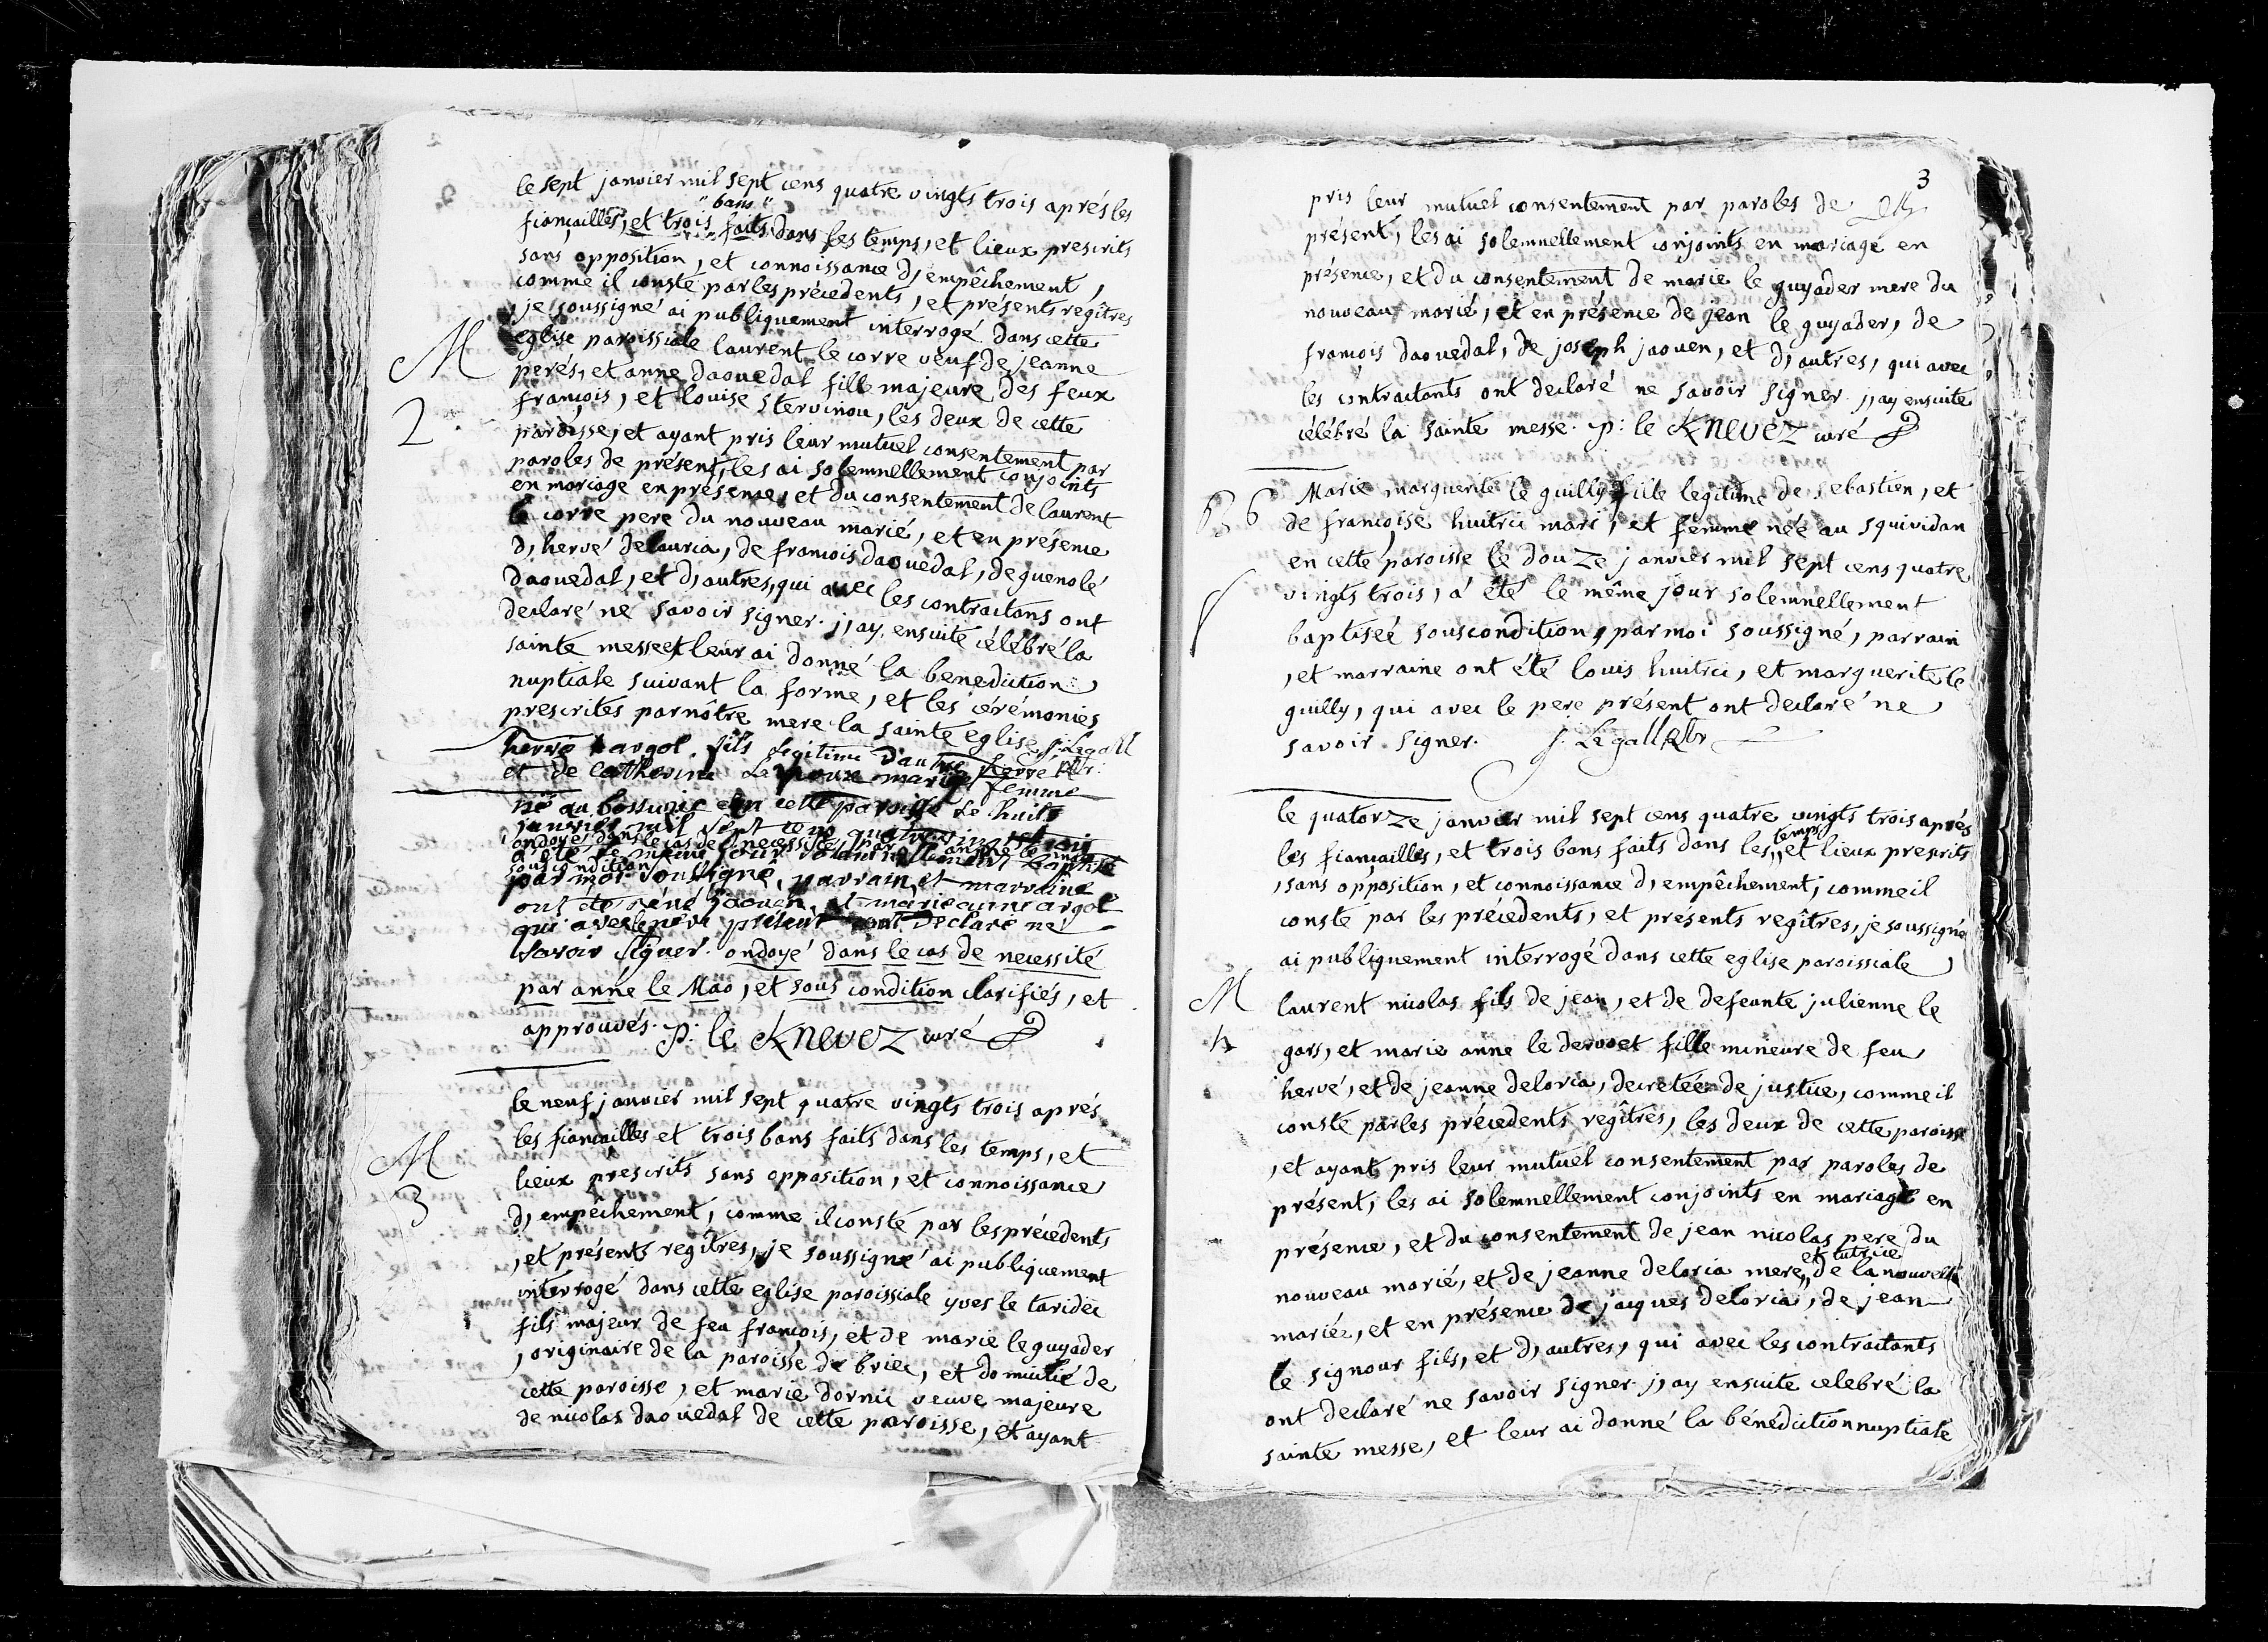 le sept janvier mil sept cens quatre vingts trois aprés les
" bans "
fiançailles, et trois faits dans les temps, et lieux prescrits
sans opposition, et connoissance d, empêchement,
comme il conste par les précedents, et présents regîtres
, je soussigné ai publiquement interrogé dans cette
M
eglise paroissiale laurent le corre veuf de jeanne
perés, et anne daouedal fille majeure des feux
2
françois, et louise stervinou, les deux de cette
paroisse, et ayant pris leur mutuel consentement par
paroles de présent, les ai solemnellement conjoints
en mariage en présence, et du consentement de laurent
le corre pere du nouveau marié, et en présence
d, hervé delouria, de françois daouedal, de guenolé
daouedal, et d, autres, qui avec les contractans ont
declaré ne savoir signer. j, ay ensuite célébré la
sainte messe et leur ai donné la benediction
nuptiale suivant la forme, et les cérémonies
prescrites par nôtre mere la sainte eglise, J: Legall
hervé argol fils legitime d'autre hervé ptr:
et de Catherine femme
né au en cette paroisse Le huit
janvier mil sept cens quatre vingt trois
ondoyé dans le cas de necessité par anne le mao
a été le même jour solemnellement baptisé
sous condition
par moi soussigné, parrain, et marraine
ont été réné jaouen, et marie anne argol
qui avec le pere présent ont declaré ne
savoir signer. ondoyé dans le cas de necessité
par anne le Mao, et sous condition clarifiés, et
approuvés. p: le Knevez curé
le neuf janvier mil sept quatre vingts trois aprés
les fiançailles et trois bans faits dans les temps, et
M
lieux prescrits sans opposition, et connoissance
3
d, empêchement, comme il conste par les précedents
, et présents regîtres, je soussigné ai publiquement
interrogé dans cette eglise paroissiale yves le taridec
fils majeur de feu françois, et de marie le guyader
, originaire de la paroisse de briec, et domicilié de
cette paroisse, et marie dornic veuve majeure
de nicolas daouedal de cette paroisse, et ayant
3
pris leur mutuel consentement par paroles de
présent, les ai solemnellement conjoints en mariage en
présence, et du consentement de marie le guyader mere du
nouveau marié, et en présence de jean le guyader, de
françois daouedal, de joseph jaouen, et d, autres, qui avec
les contractants ont declaré ne savoir signer. j, ay ensuite
célébré la sainte messe. p: le Knevez curé
Marie marguerite le guilly fille legitime de sebastien, et
B 6
de françoise huitric mari, et femme née au squividan
en cette paroisse le douze janvier mil sept cens quatre
vingts trois, a été le même jour solemnellement
baptiseé sous condition par moi soussigné, parrain
, et marraine ont été louis huitric, et marguerite le
guilly, qui avec le pere présent ont declaré ne
savoir signer. J. Legall Ptr
le quatorze janvier mil sept cens quatre vingts trois aprés
temps
les fiançailles, et trois bans faits dans les,, et lieux prescrits
, sans opposition, et connoissance d, empêchement, comme il
conste par les précedents, et présents regîtres, je soussigné
ai publiquement interrogé dans cette eglise paroissiale
M
laurent nicolas fils de jean, et de defeunte julienne le
4
gars, et marie anne le dervoet fille mineure de feu
hervé, et de jeanne deloria, decretée de justice, comme il
conste par les précedents regîtres, les deux de cette paroisse
, et ayant pris leur mutuel consentement par paroles de
présent, les ai solemnellement conjoints en mariage en
présence, et du consentement de jean nicolas pere du
et tutrice
nouveau marié, et de jeanne deloria mere,, de la nouvelle
mariée, et en présence de jacques deloria, de jean
le signour fils, et d, autres, qui avec les contractants
ont declaré ne savoir signer. j, ay ensuite celebré la
sainte messe, et leur ai donné la bénédiction nuptiale